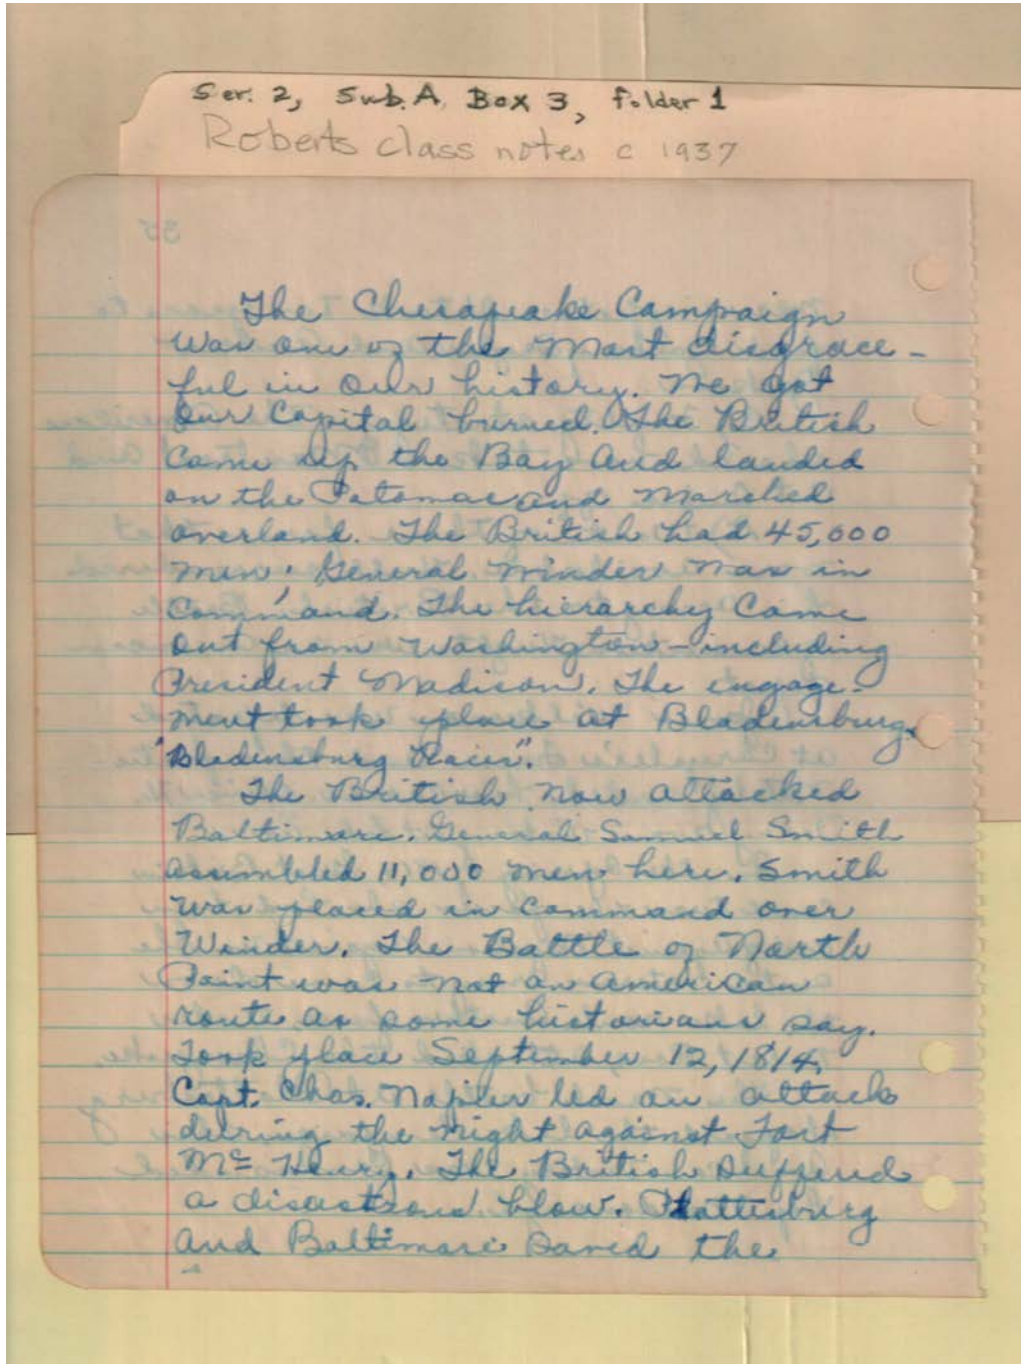 Ser. 2, Sub. A, Box 3, folder 1
Roberts class notes c 1937
The Chesapeake Campaign
was one of the most disgrace-
ful in our history. We got
our Capital burned. The British
came up the Bay and landed
on the Patomac and marched
overland. The British had 45,000
men. General Winder was in
Command. The hierarchy came
out from Washington - including
President Madison. The engage-
ment took place at Bladensburg.
"Bladensburg Races".
The British now attacked
Baltimore. General Samuel Smith
assembled 11,000 men here. Smith
was placed in command over
Winder. The Battle of North
Point was not an American
route as some historians say.
Took place September 12, 1814.
Capt. Chas. Napier led an attack
during the night against Fort
Mc Henry. The British suffered
a disastrous blow. Plattesburg
and Baltimore saved the